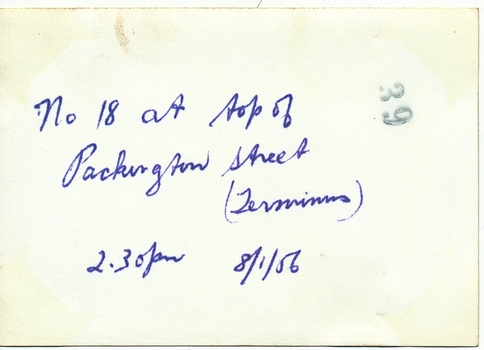 No 18 at top of
Packington Street
(Terminus)
2.30pm 8/1/56
39